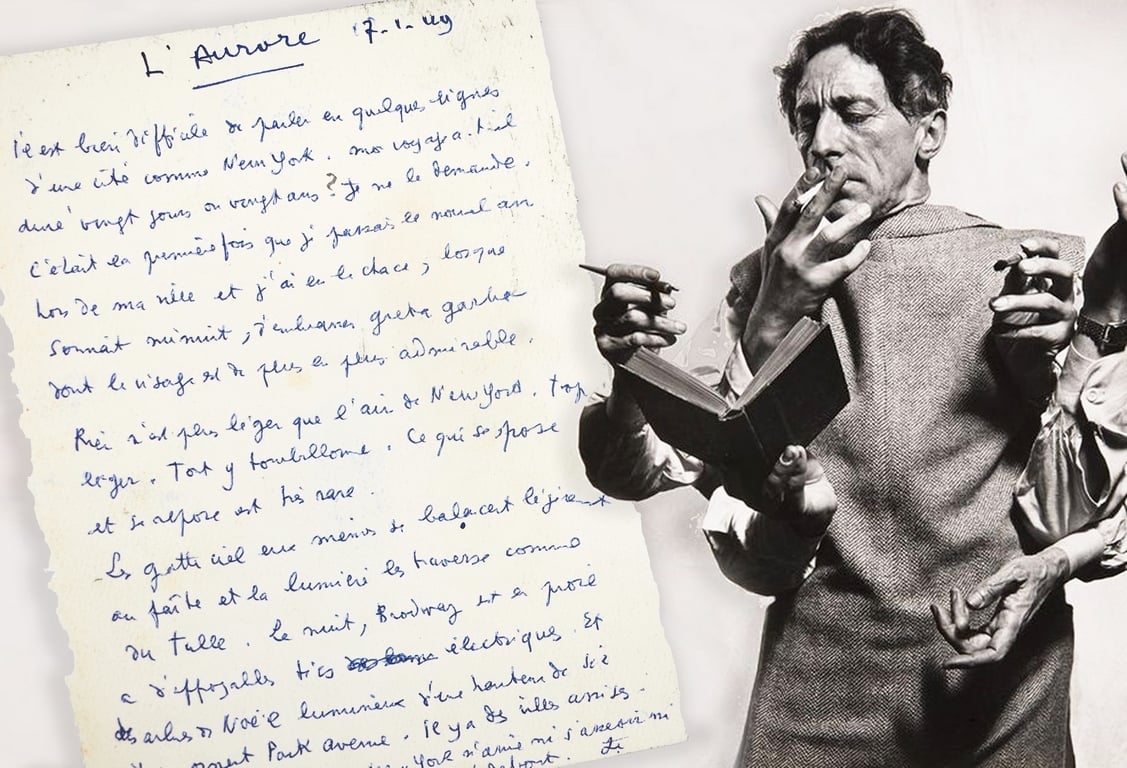 L'Aurore 7-1-49
Il est bien difficile de parler en quelques lignes
d'une cité comme New York. mon voyage a-t-il
duré vingt jours ou vingt ans ? Je me le demande.
C'était la première fois que je passais le nouvel an
hors de ma ville et j'ai eu la chance, lorsque
sonnait minuit, d'embrasser greta garbo
dont le visage est de plus en plus admirable.
Rien n'est plus léger que l'air de New York. trop
léger. Tout y tourbillonne. Ce qui se pose
et se repose est très rare.
Les gratte ciel eux mêmes se balancent légèrement
au faîte et la lumière les traverse comme
du tulle. la nuit, Brodway est en proie
a d'effroyables tics électriques. Et
des arbres de Noël lumineux d'une hauteur de
Park avenue. Il y a des villes assises.
York n'aime ni s'asseoir ni